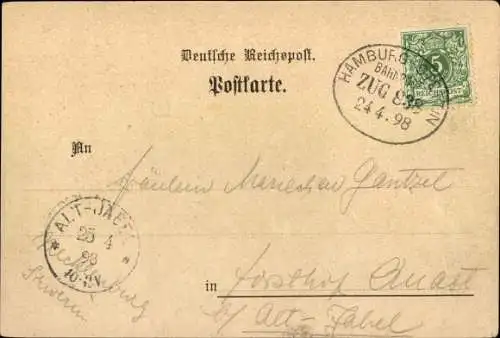 Deutsche Reichspost.
Postkarte.
HAMBURG
BAHNPOST
ZUG 838
24.4.98
5
REICHSPOST
An
Fräulein Mariechen Gantzel
ALT-JABEL
25 4
98
Mecklenburg
Schwerin
in Forsthof
b/ Alt-Jabel